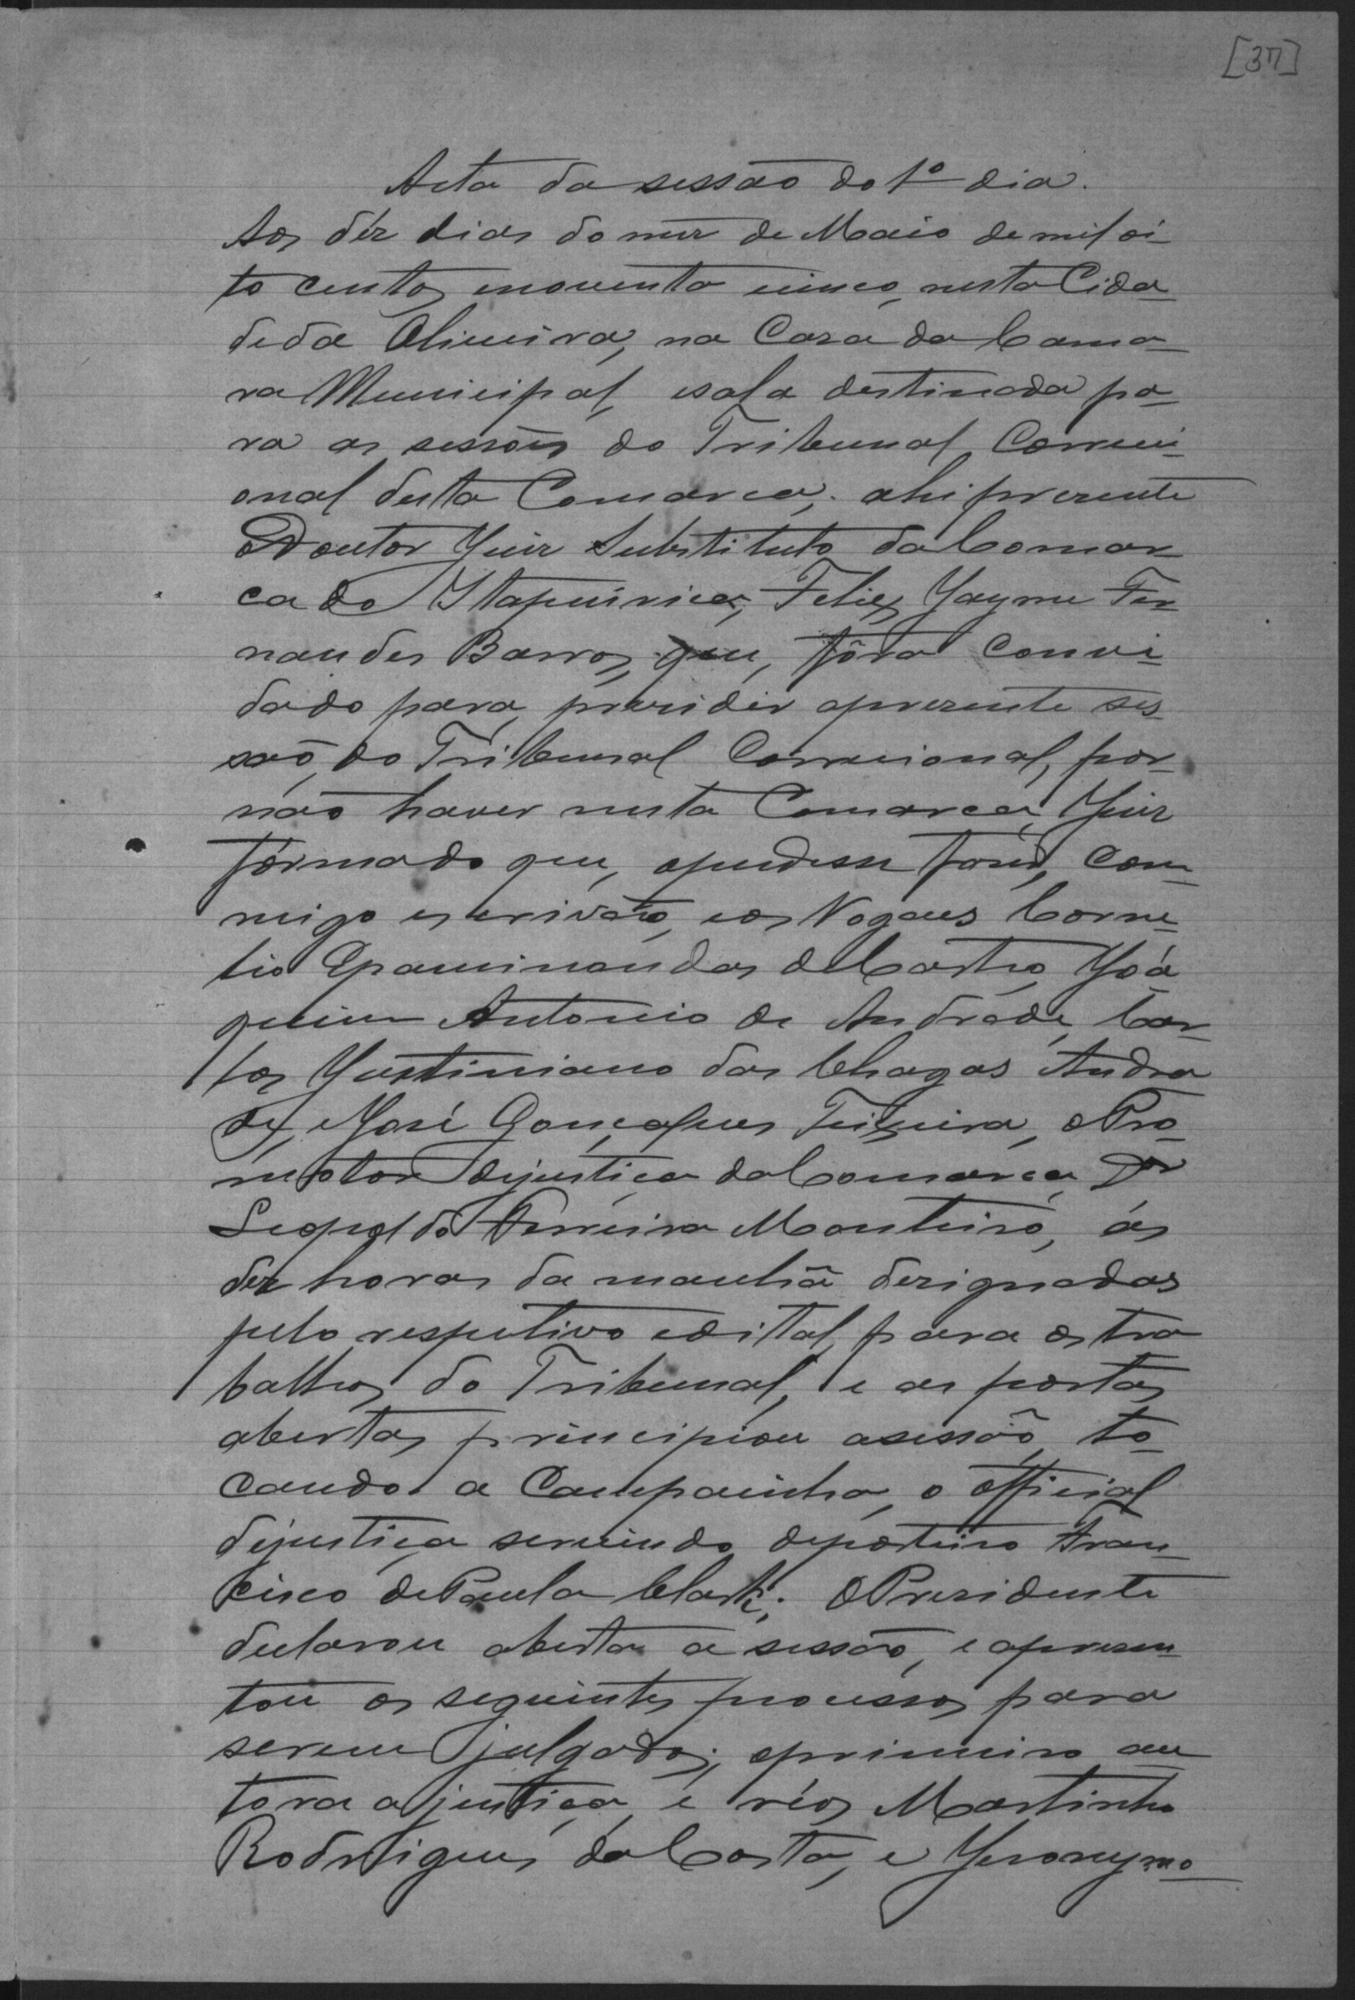 [37]
Acta da sessão do 1º dia.
Aos déz dias do mez de Maio de mil oi
to centos enoventa ecinco, nesta Cida
deda Oliveira, na Casa da Cama-
ra Municipal, esala destinada pa-
ra as sessões do Tribunal Correci-
onal desta Comarca, ahi presente
oDoutor Juiz Substituto da Comar
ca do Itapecirica, Felix Jayme Fer-
nandes Barros, que, fôra convi-
dado para presidir apresente ses-
são do Tribunal Correcional, por
não haver nesta Comarca, Juiz
formado que, opudesse com-
migo escrivão, eos Vogaes Corne-
lio Epaminondas deCastro, Joa
quim Antonio de Andrade, Car-
los Justiniano das Chagas Andra
de, eJosé Gonçalves Teixeira, oPro-
motor dejustiça da Comarca Dor
Leopoldo Ferreira Monteiro, ás
dez horas da manhã designadas
pelo respetivo edital, para os tra
balhos do Tribunal, e as portas
abertas principiou asessão, to-
cando a Campainha, o official
dejustiça servindo deporteiro Fran-
cisco dePaula OPresidente
declarou aberta a sessão, e apresen-
tou os seguintes processos para
serem julgados; oprimeiro au-
tora ajustiça, e réos Martinho
Rodrigues da Costa, e Jeronymo